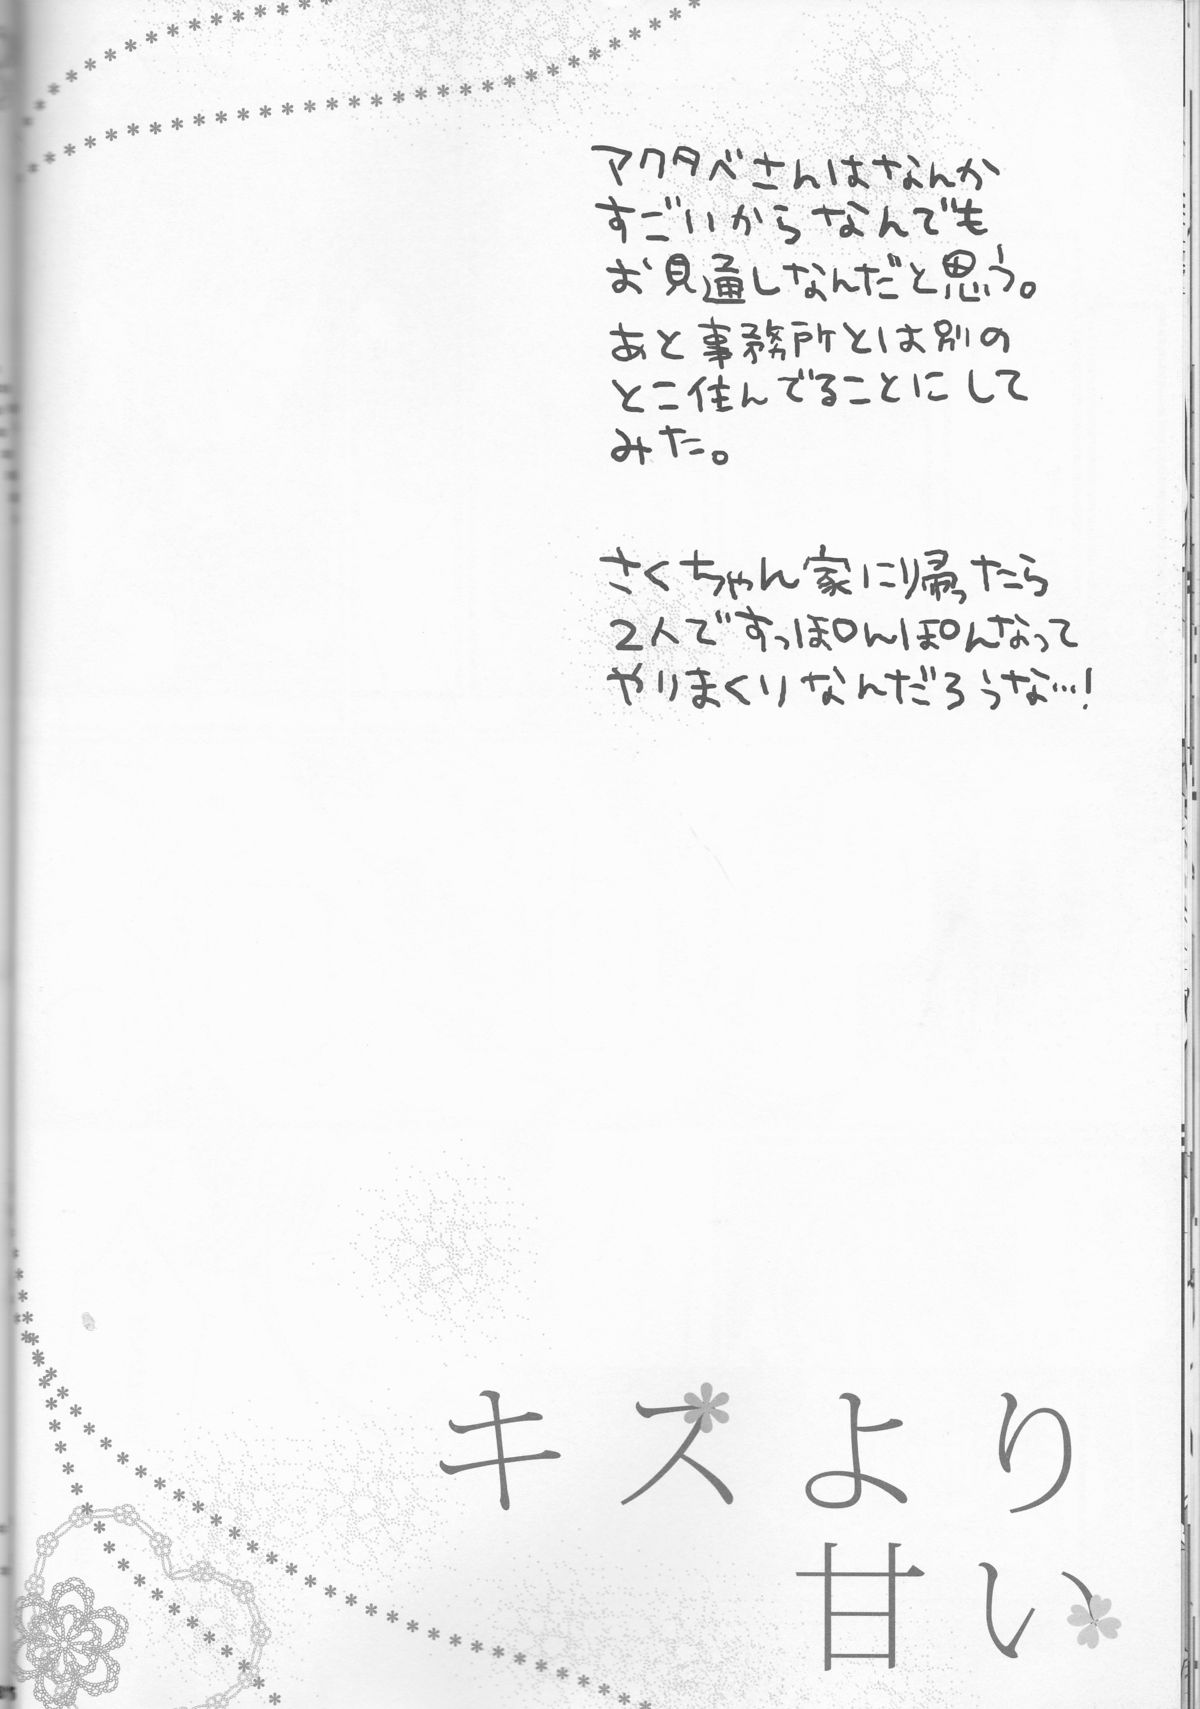 アクタベさんはなんか
すごいからなんでも
お見通しなんだと思う。
あと事務所とは別の
とこ住んでることにして
みた。
さくちゃん家に帰ったら
2人ですっぽんぽんなって
やりまくりなんだろうな…!
キズより
甘い